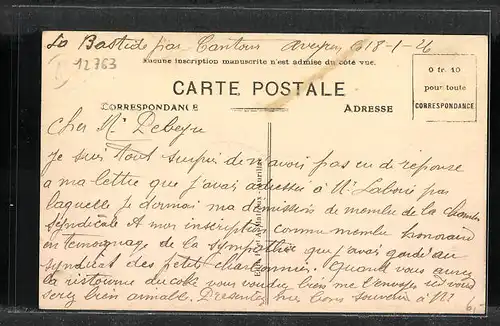 La Bastide par Cantoin Aveyron 18-1-26
12763
Aucune inscription manuscrite n'est admise du côté vue.
CARTE POSTALE
0 fr. 10
pour toute
CORRESPONDANCE
CORRESPONDANCE
ADRESSE
Cher Mr Debeyre
Je suis tout surpris de n'avoir pas eu de reponse
a ma lettre que j'avais adressée a Mr Laborie par
laquelle je donnais ma démission de membre de la chambre
Syndicale et mon inscription comme membre honoraire
en témoignage de la sympathie que j'avais gardé au
syndicat des petits charbonniers. Quand vous aurez
la ristourne du coke vous voudrez bien me l'envoyer si vous
serez bien aimable. Presentez mes bons souvenir a Mr
6,-